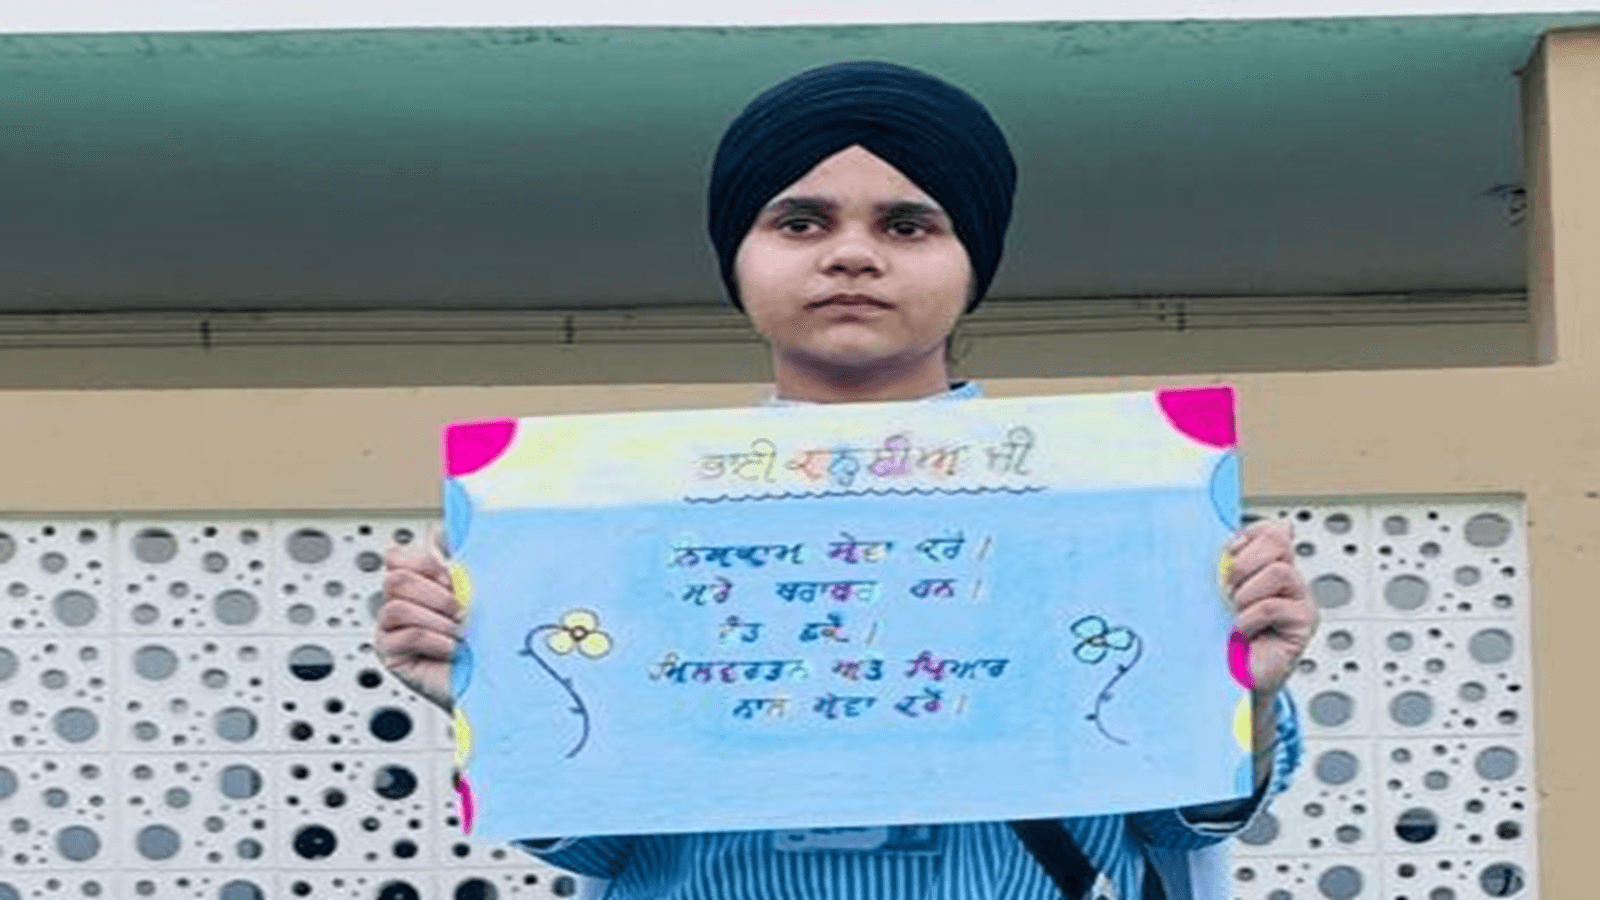 ਭਾਈ ਕਨ੍ਹਈਆ ਜੀ
ਨਿਸ਼ਕਾਮ ਸੇਵਾ ਕਰੋ।
ਸਾਰੇ ਬਰਾਬਰ ਹਨ।
ਛਕੋ।
ਮਿਲਵਰਤਨ ਅਤੇ ਪਿਆਰ
ਨਾਲ ਸੇਵਾ ਕਰੋ।